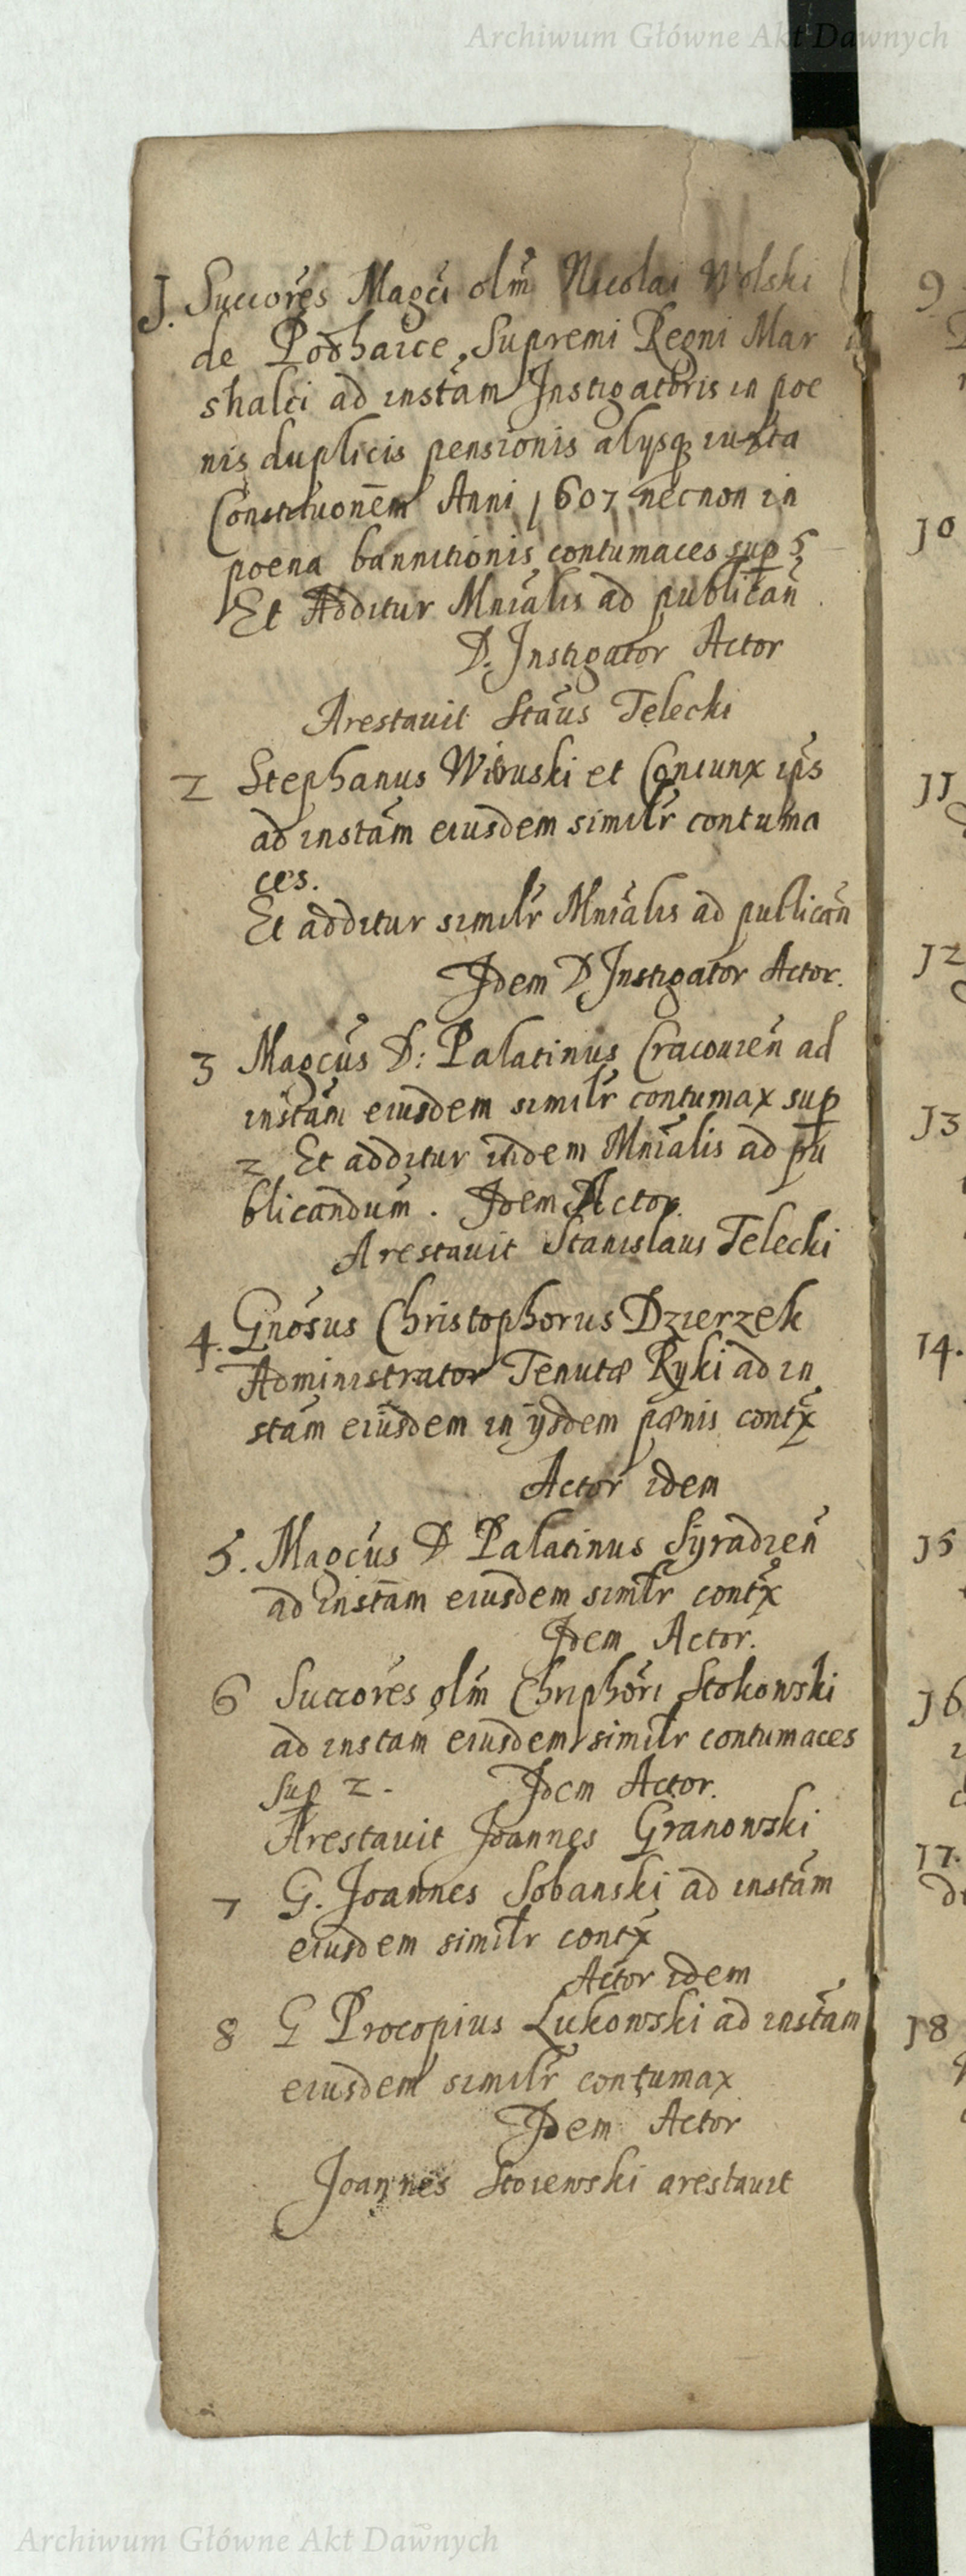 Archiwum Główne Akt Dawnych
1. Succores Magci olm Nicolai Wolski
de Podhaice, Supremi Regni Mar
shalci ad instam Instigatoris in poe
nis duplicis pensionis alysq iuxta
Constituonem Anni 1607 necnon in
poena bannitionis contumaces sup 5
Et Additur Mnialis ad publican
D. Instigator Actor
Arestauit Staus Telecki
2 Stephanus et Coniunx ips
ad instam eiusdem similr contuma
ces.
Et additur similr Mnialis ad publican
Idem D Instigator Actor.
3 Magcus D: Palatinus Cracouien ad
instam eiusdem similr contumax sup
2 Et additur itidem Mnialis ad pu
blicandum. Idem Actor.
Arestauit Stanislaus Telecki
4. Gnosus Christophorus Dzierzek
Administrator Tenutæ Ryki ad in
stam eiusdem in ysdem pænis contx
Actor idem
5. Magcus D Palatinus Syradien
ad instam eiusdem similr contx
Idem Actor.
6 Succores olm Chriphori Stokowski
ad instam eiusdem similr contumaces
sup 2. Idem Actor.
Arestauit Joannes Granowski
7 G. Joannes Sobanski ad instam
eiusdem similr contx
Actor idem
8 G Procopius Lukowski ad instam
eiusdem similr contumax
Idem Actor
Joannes Stoiewski arestauit
9
10
11
12
13
14.
15
16
17.
18
Archiwum Główne Akt Dawnych